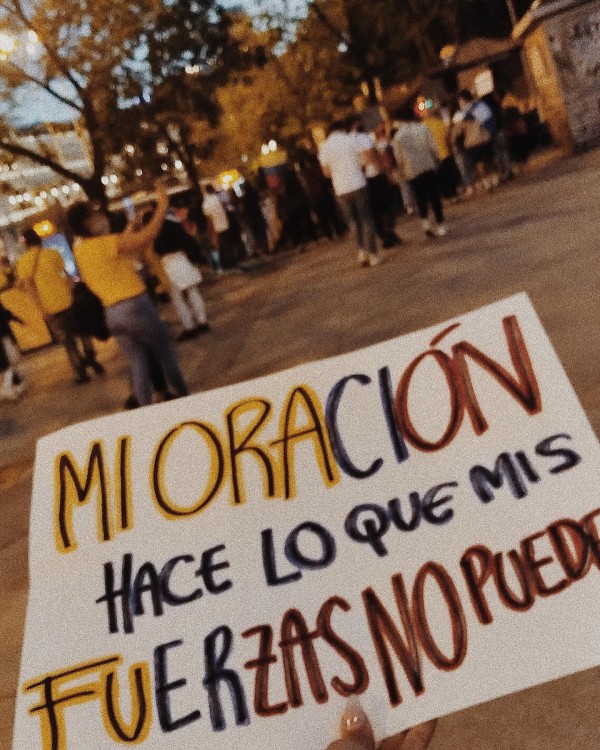 MI ORACIÓN
HACE LO QUE MIS
FUERZAS NO PUEDE